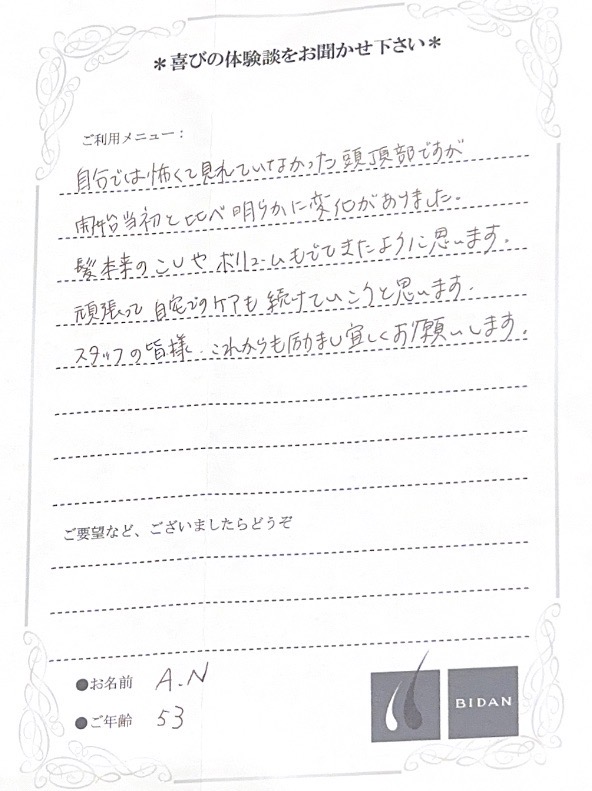 ＊喜びの体験談をお聞かせ下さい＊
ご利用メニュー：
自分では怖くて見れていなかった頭頂部ですが
開始当初と比べ明らかに変化がありました。
髪本来のこしやボリュームもでてきたように思います。
頑張って自宅でのケアも続けていこうと思います.
スタッフの皆様．これからも励まし宜しくお願いします。
ご要望など、ございましたらどうぞ
●お名前 A.N
●ご年齢 53
BIDAN